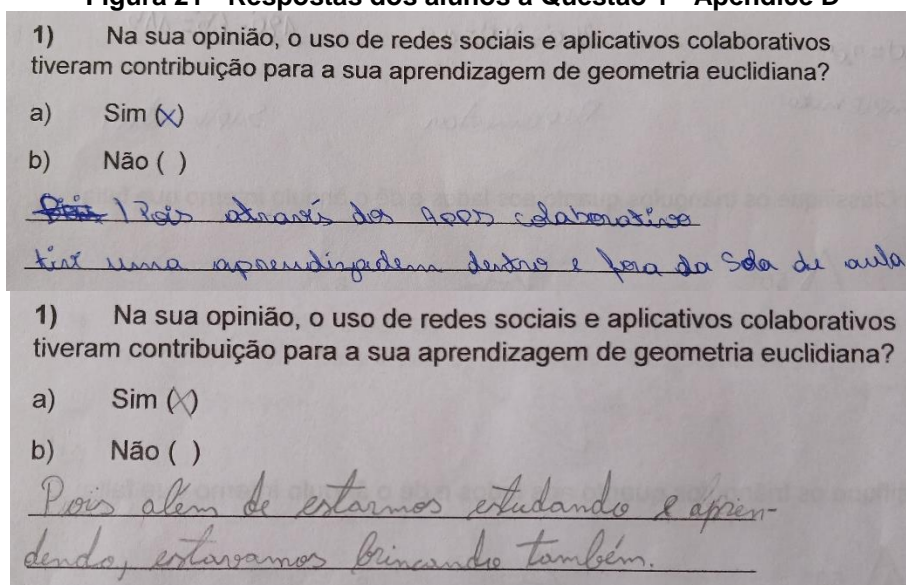 Figura 21 - Respostas dos alunos a Questão 1 - Apêndice D
1) Na sua opinião, o uso de redes sociais e aplicativos colaborativos
tiveram contribuição para a sua aprendizagem de geometria euclidiana?
a) Sim (x)
b) Não ( )
Pois através dos Apps colaborativo
tive uma aprendizadem dentro e fora da Sala de aula
1) Na sua opinião, o uso de redes sociais e aplicativos colaborativos
tiveram contribuição para a sua aprendizagem de geometria euclidiana?
a) Sim (X)
b) Não ( )
Pois além de estarmos estudando e apren-
dendo, estavamos brincando também.